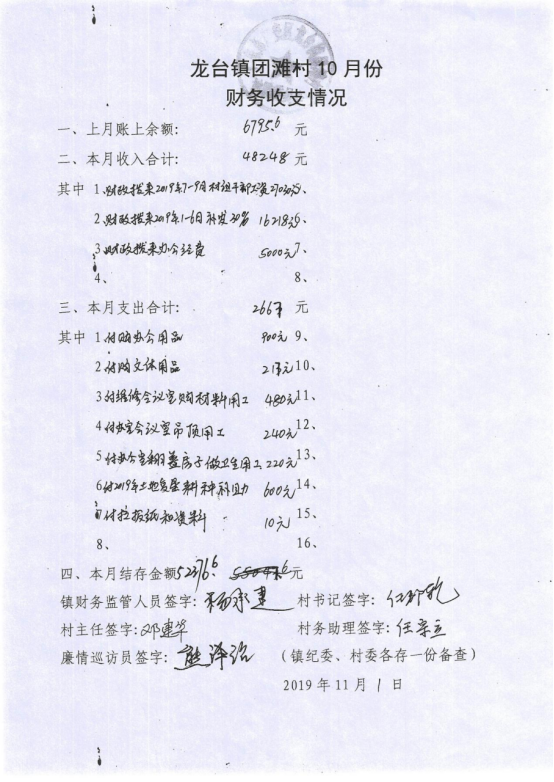 龙台镇团滩村10月份
财务收支情况
一、上月账上余额: 6795.6 元
二、本月收入合计: 48248 元
其中 1.财政拨来2019年7-9月村组干部工资27030元 5、
2.财政拨来2019年1-6月补发30% 16218元 6、
3.财政拨来办公经费 5000元 7、
4、 8、
三、本月支出合计: 2667 元
其中 1.付购办公用品 900元 9、
2.付购文体用品 217元 10、
3.付维修会议室购材料用工 480元 11、
4.付会议室吊顶用工 240元 12、
5.付办公室翻盖房子做卫生用工 220元 13、
6.付2019年土地 600元 14、
7.付拉报纸和资料 10元 15、
8、 16、
四、本月结存金额 52376.6 元
镇财务监管人员签字: 村书记签字:
村主任签字:邓建华 村务助理签字:
廉情巡访员签字: (镇纪委、村委各存一份备查)
2019年11月1日